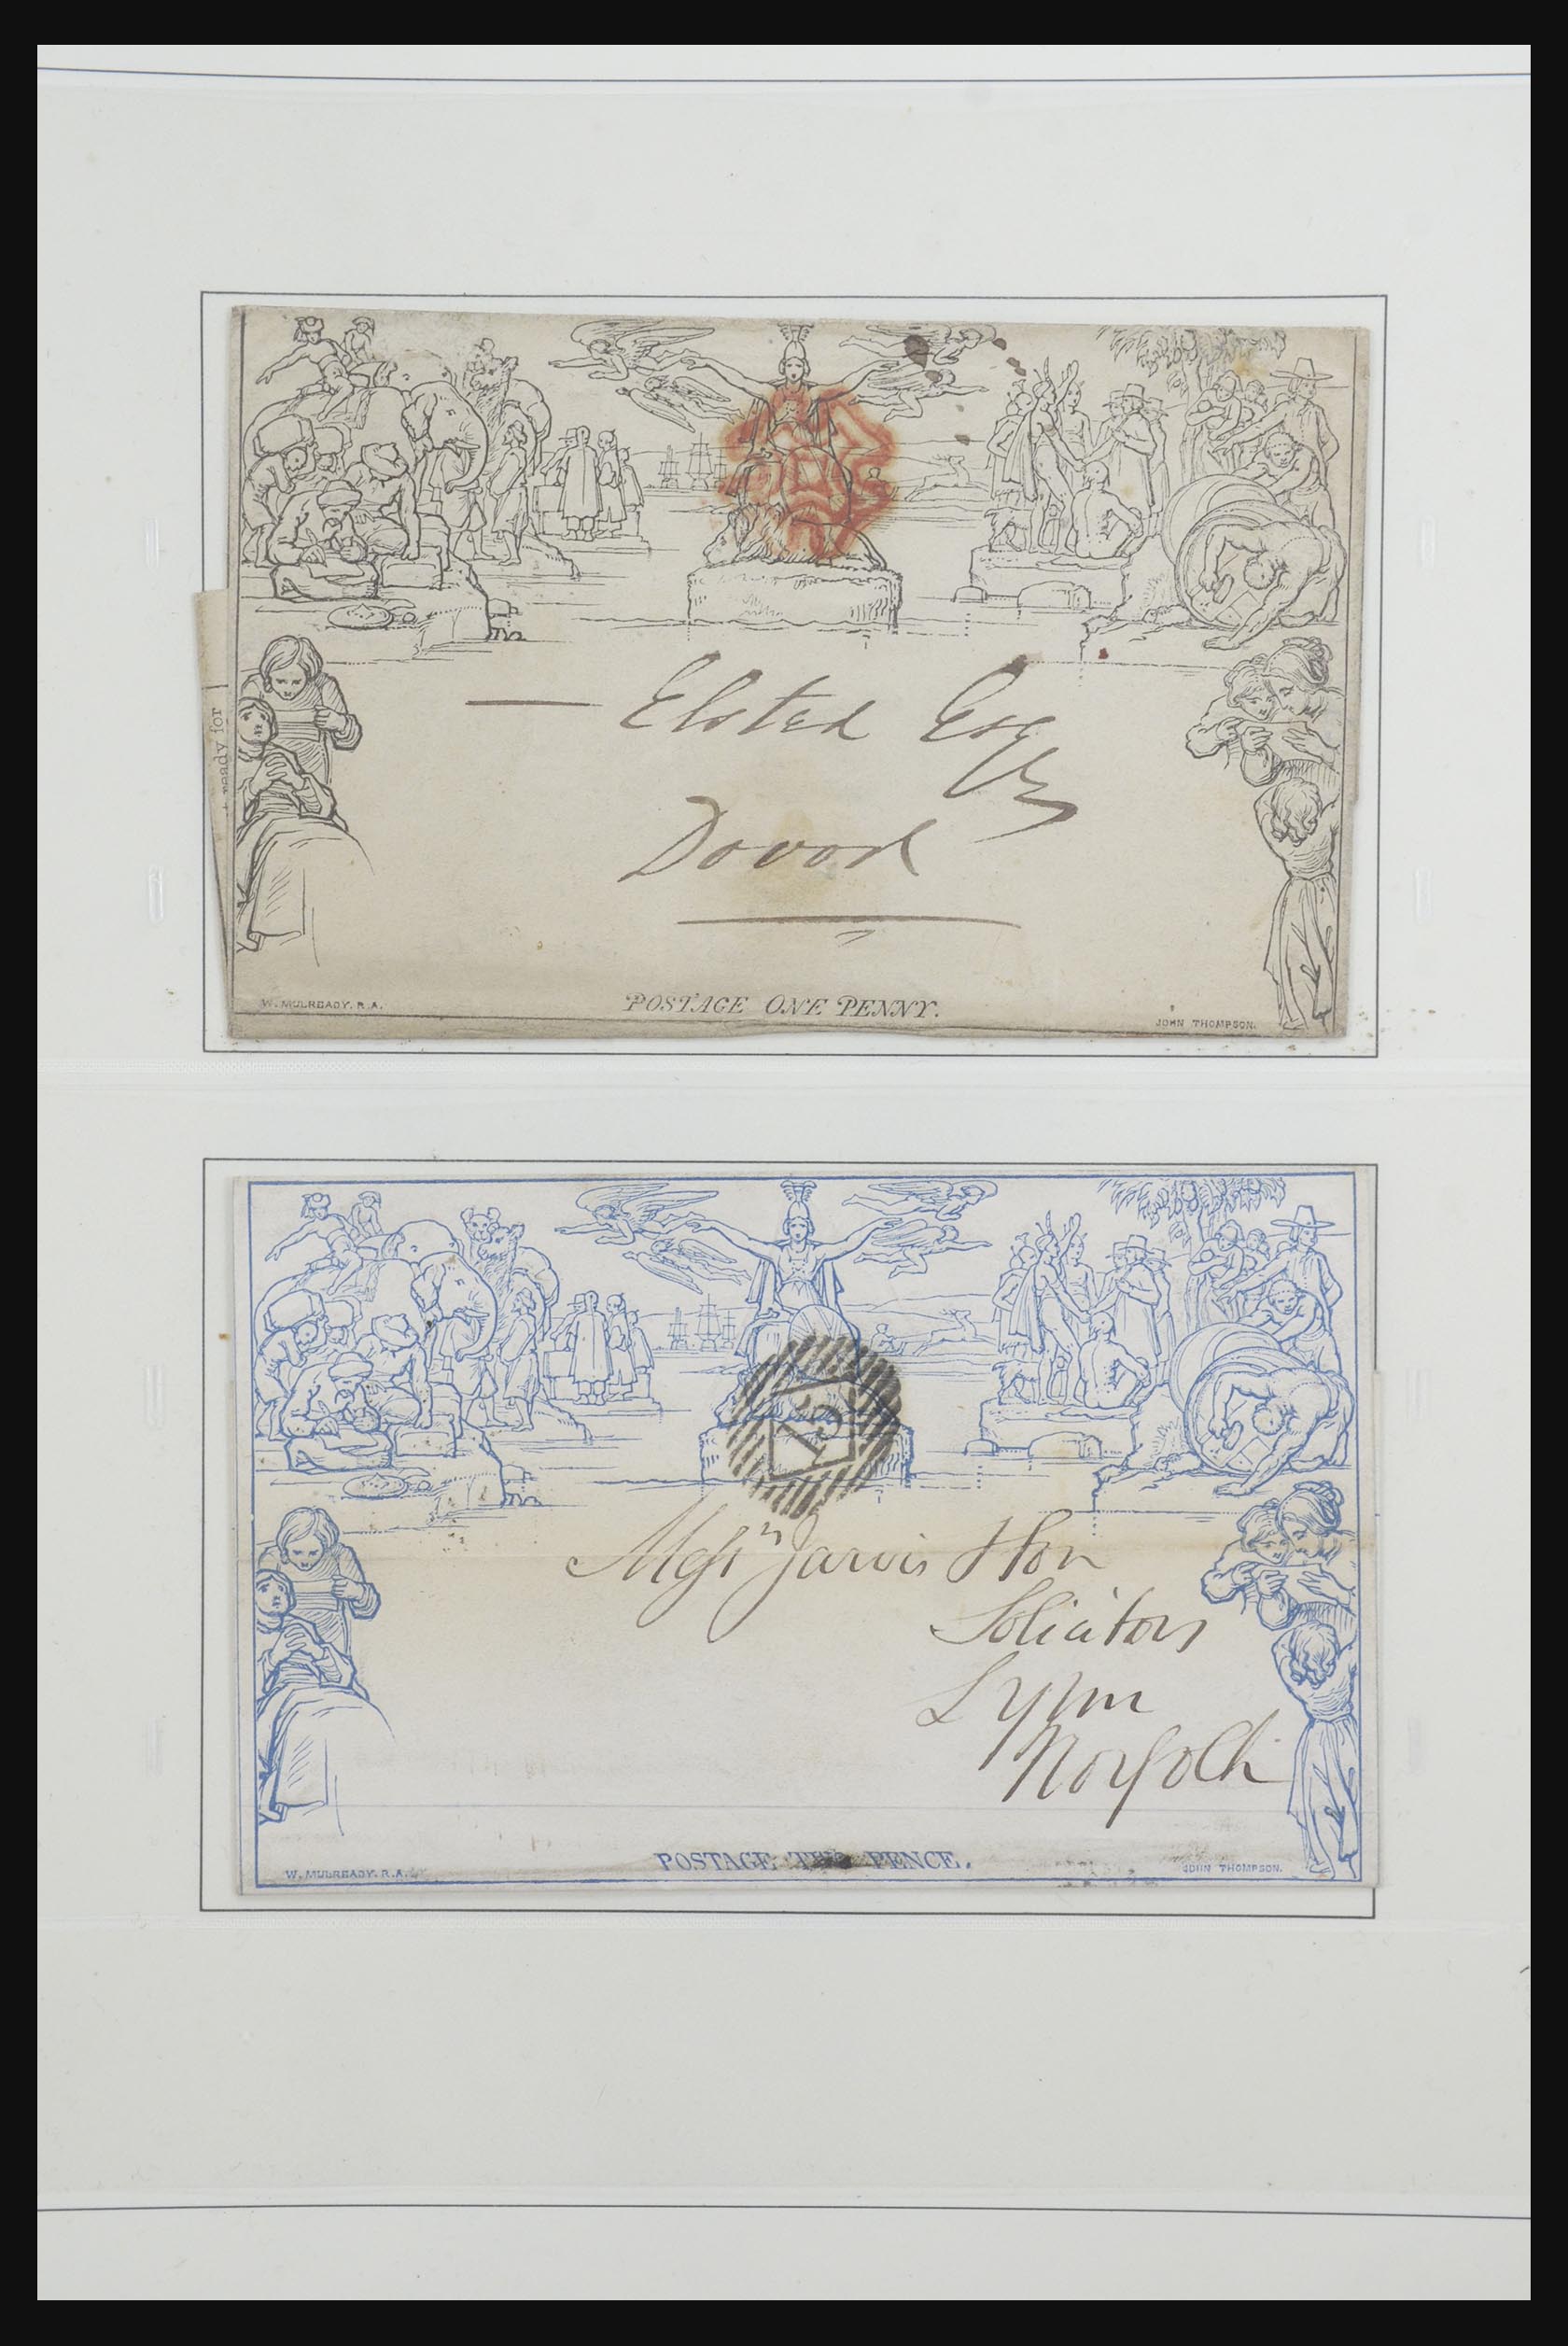 ready for
— Elsted Esq
Dover
W. MULREADY. R.A.
POSTAGE ONE PENNY.
JOHN THOMPSON.
15
Messrs Jarvis
Solicitors
Lynn
Norfolk
W. MULREADY. R.A.
POSTAGE TWO PENCE.
JOHN THOMPSON.